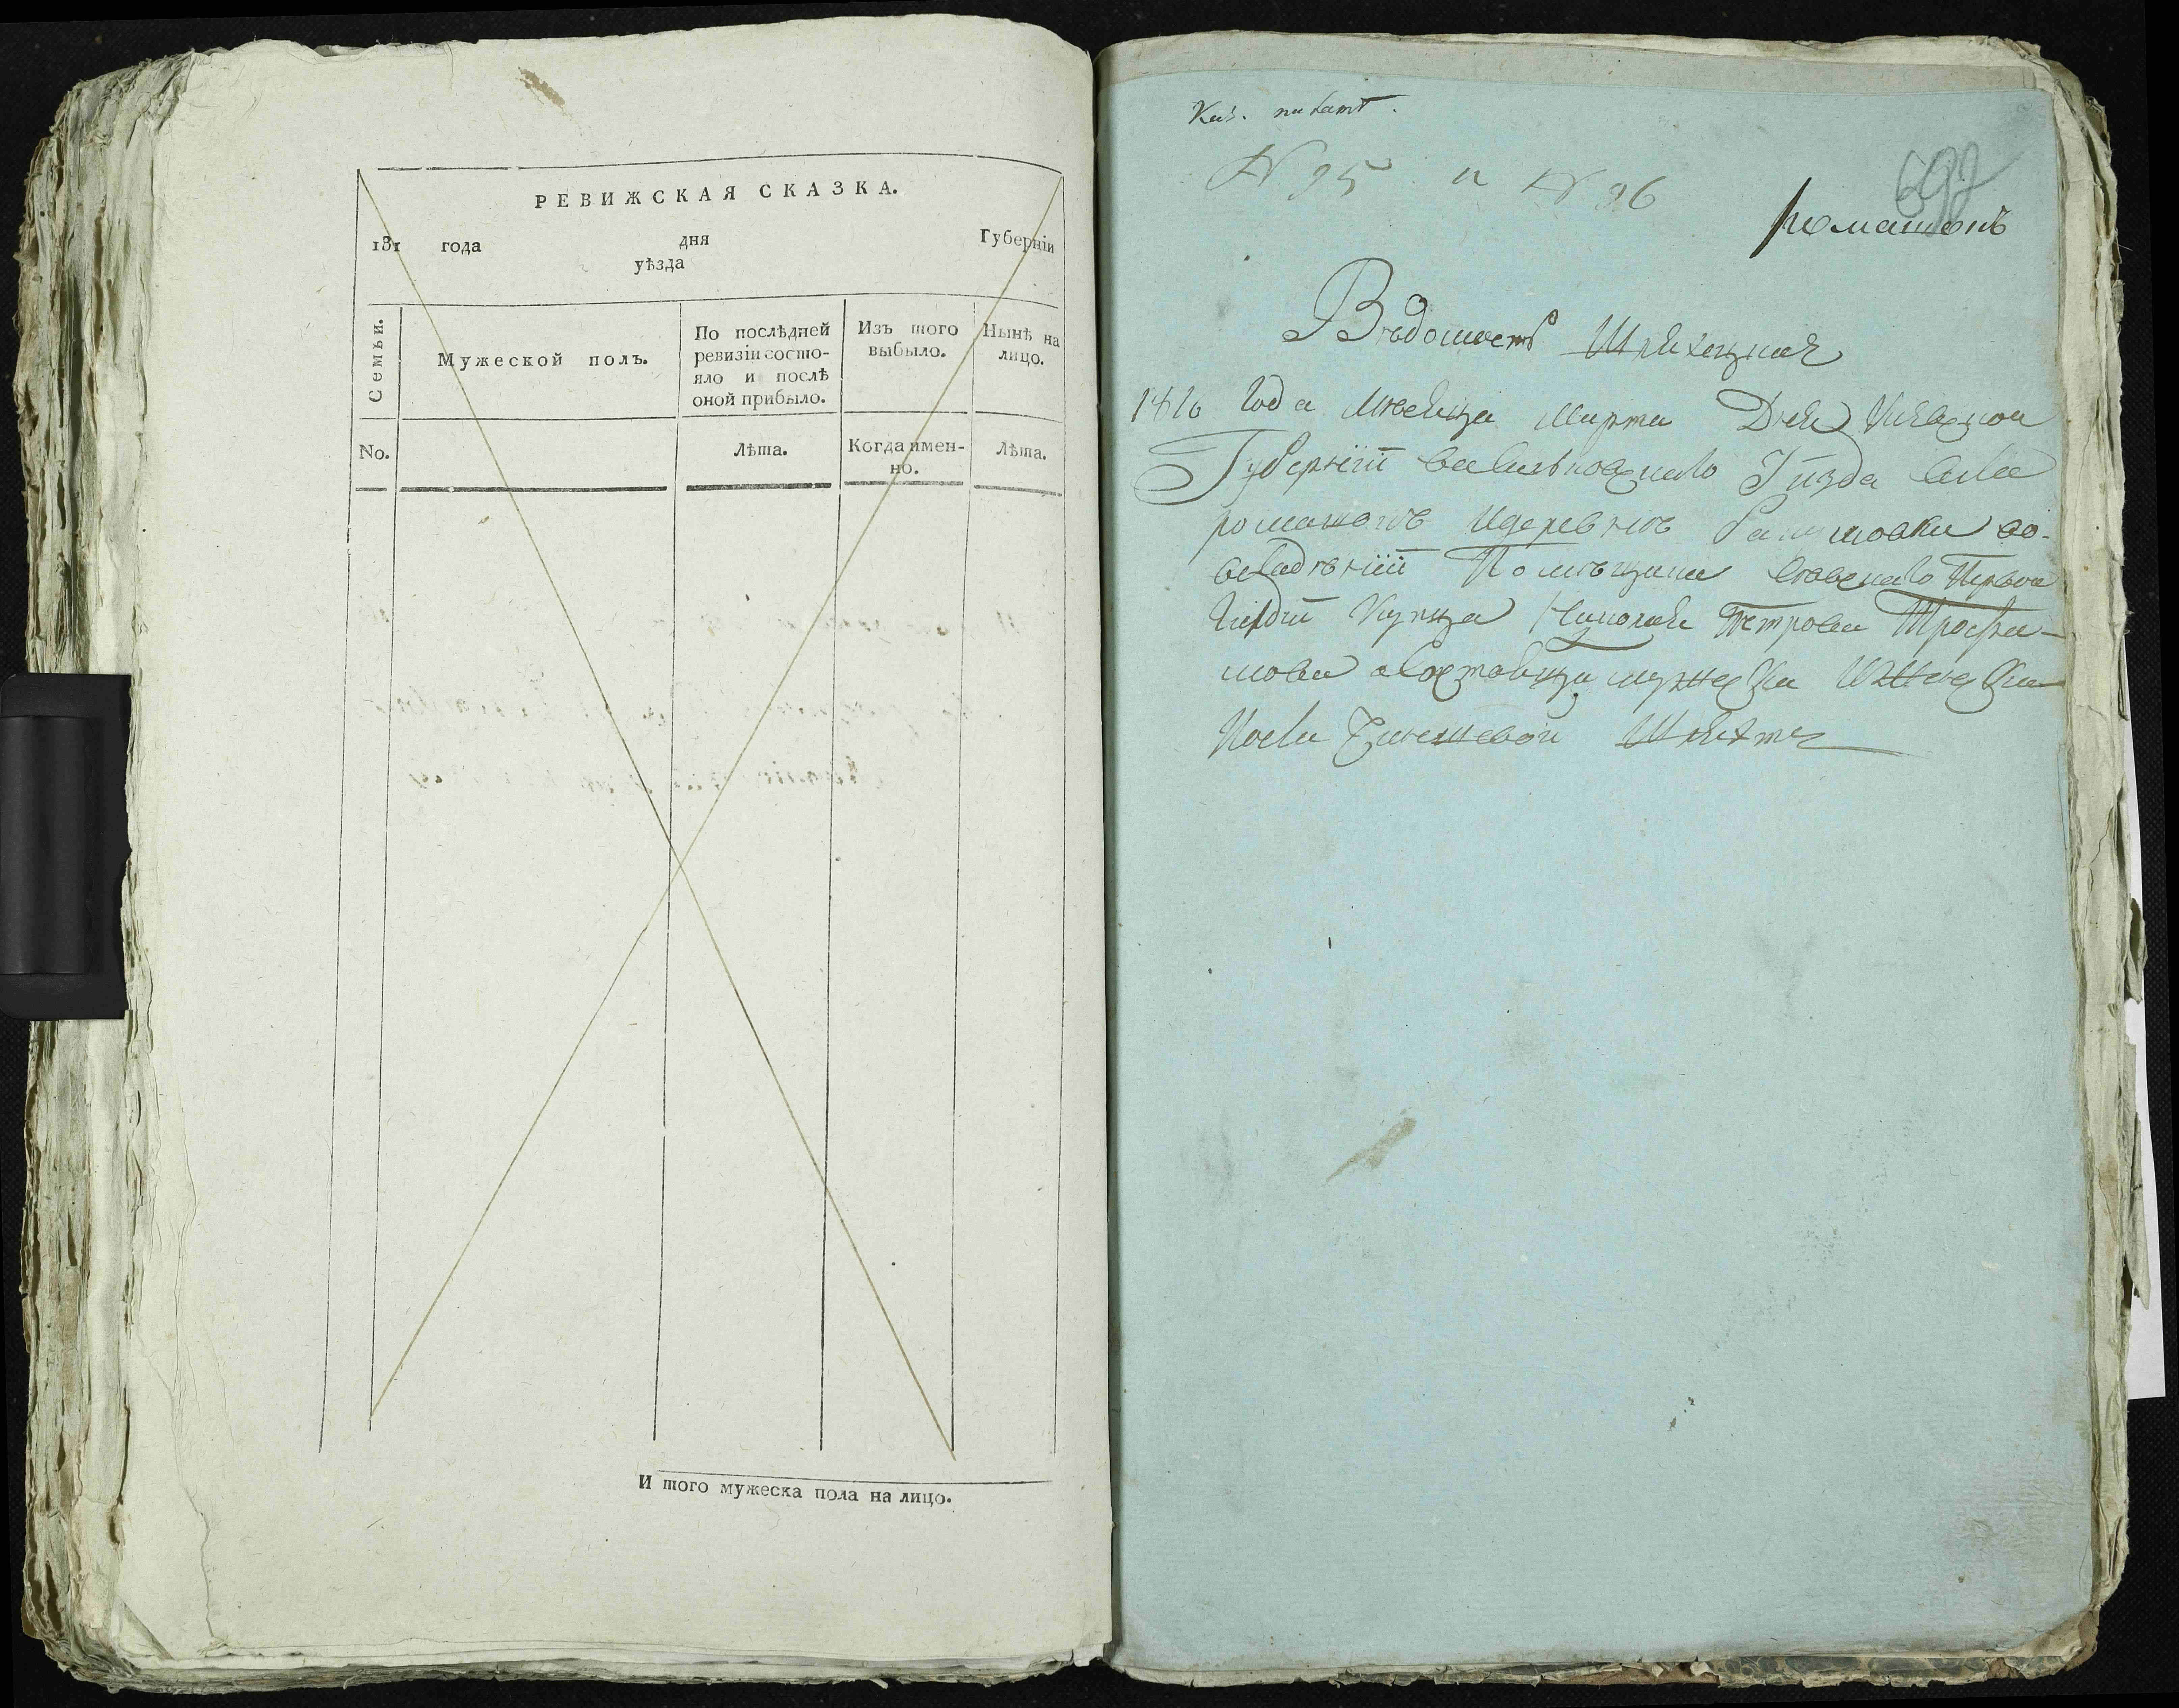 РЕВИЖСКАЯ СКАЗКА.
181 года дня Губернїи
уѣзда
Семьи.
Мужеской полъ.
По послѣдней
ревизїи состо-
яло и послѣ
оной прибыло.
Изъ того
выбыло.
Нынѣ на
лицо.
No.
Лѣта.
Когда имен-
но.
Лѣта.
И того мужеска пола на лицо.
N 95 и N 96
697
романовъ
Вѣдомость Шляхецкая
1816 Года Мѣсяца Марта Дня Кіевской
Губерніи Васильковскаго Уѣзда села
романовъ Идеревнѣ
Помѣщика Первои
Гилдіи Купца Николая Петрова Трофи-
мова
Чиншевой Шляхте